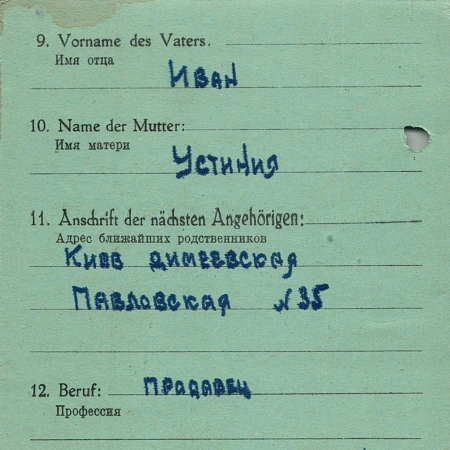 9. Vorname des Vaters.
Имя отца
Иван
10. Name der Mutter:
Имя матери
Устиния
11. Anschrift der nächsten Angehörigen:
Адрес ближайших родственников
Киев димеевская
Павловская N 35
12. Beruf: прадавец
Профессия